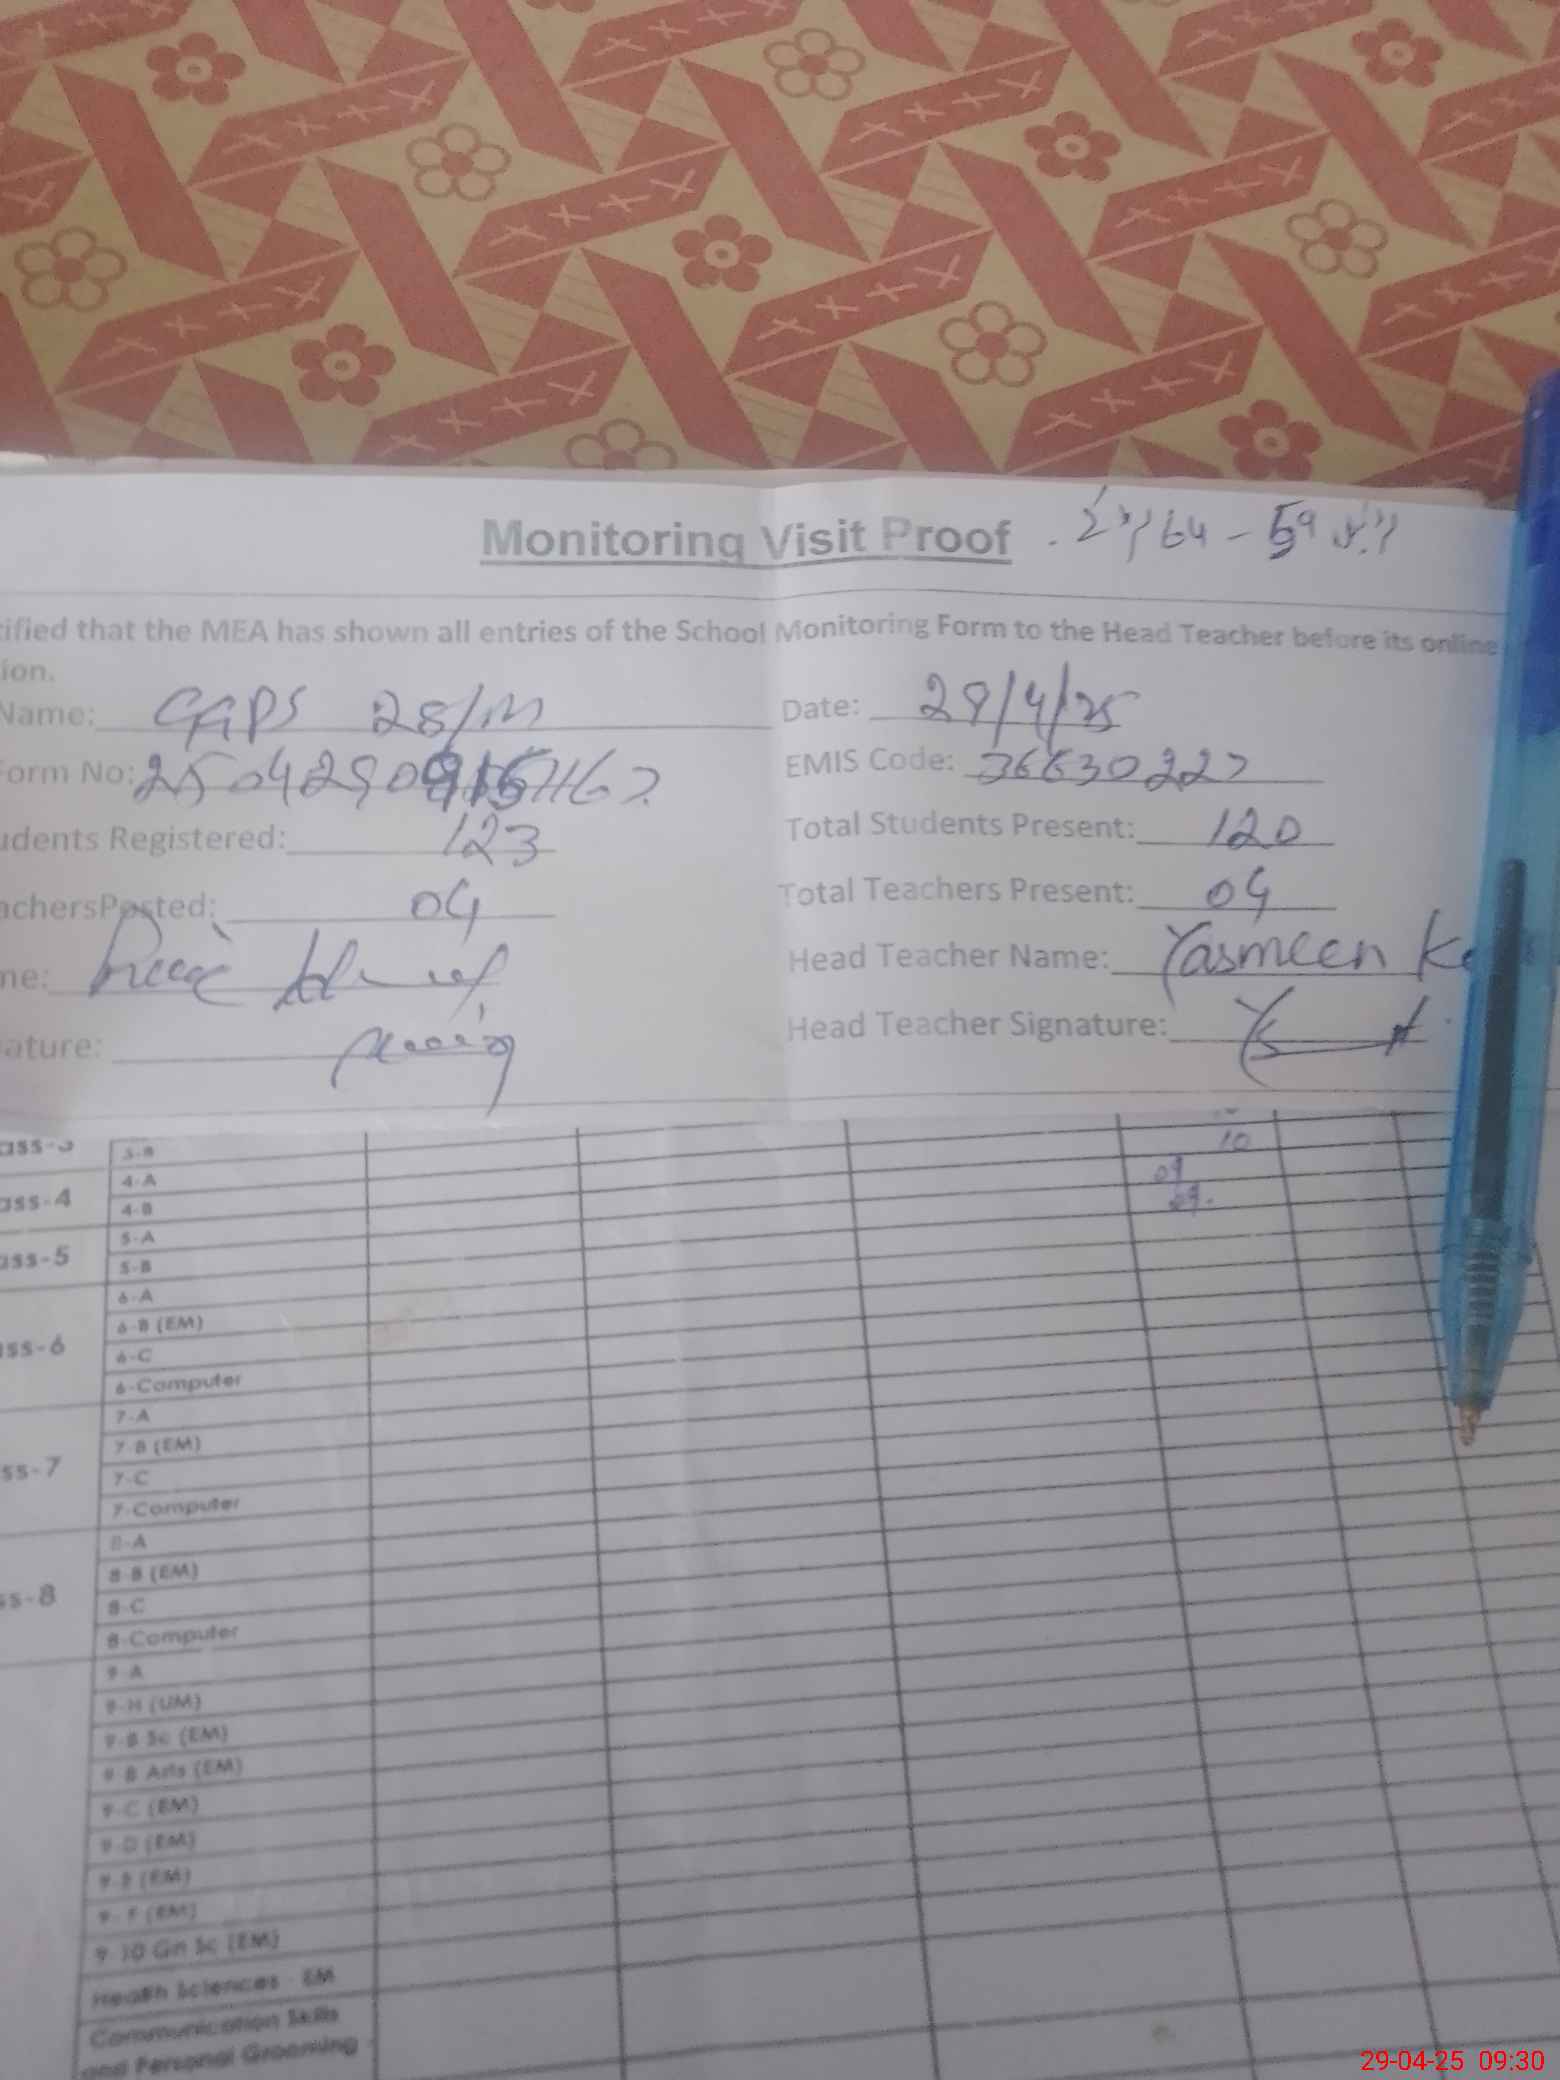 Monitoring Visit Proof
64 - 59
tified that the MEA has shown all entries of the School Monitoring Form to the Head Teacher before its online
ion.
Name: GGPS 28/M Date: 29/4/25
Form No: EMIS Code: 36630227
udents Registered: 123 Total Students Present: 120
achersPosted: 04 Total Teachers Present: 04
me: Head Teacher Name: Yasmeen
ature: Head Teacher Signature:
ass-3 3-B 10
4-A 09
ass-4 4-B 09.
5-A
ass-5 5-B
6-A
6-B (EM)
ass-6 6-C
6-Computer
7-A
7-B (EM)
ss-7 7-C
7-Computer
8-A
8-B (EM)
ss-8 8-C
8-Computer
9-A
9-H (UM)
9-B Sc (EM)
9-B Arts (EM)
9-C (EM)
9-D (EM)
9-E (EM)
9-F (EM)
9-10 Gn Sc (EM)
Health Sciences - EM
Communication Skills
and Personal Grooming
29-04-25 09:30